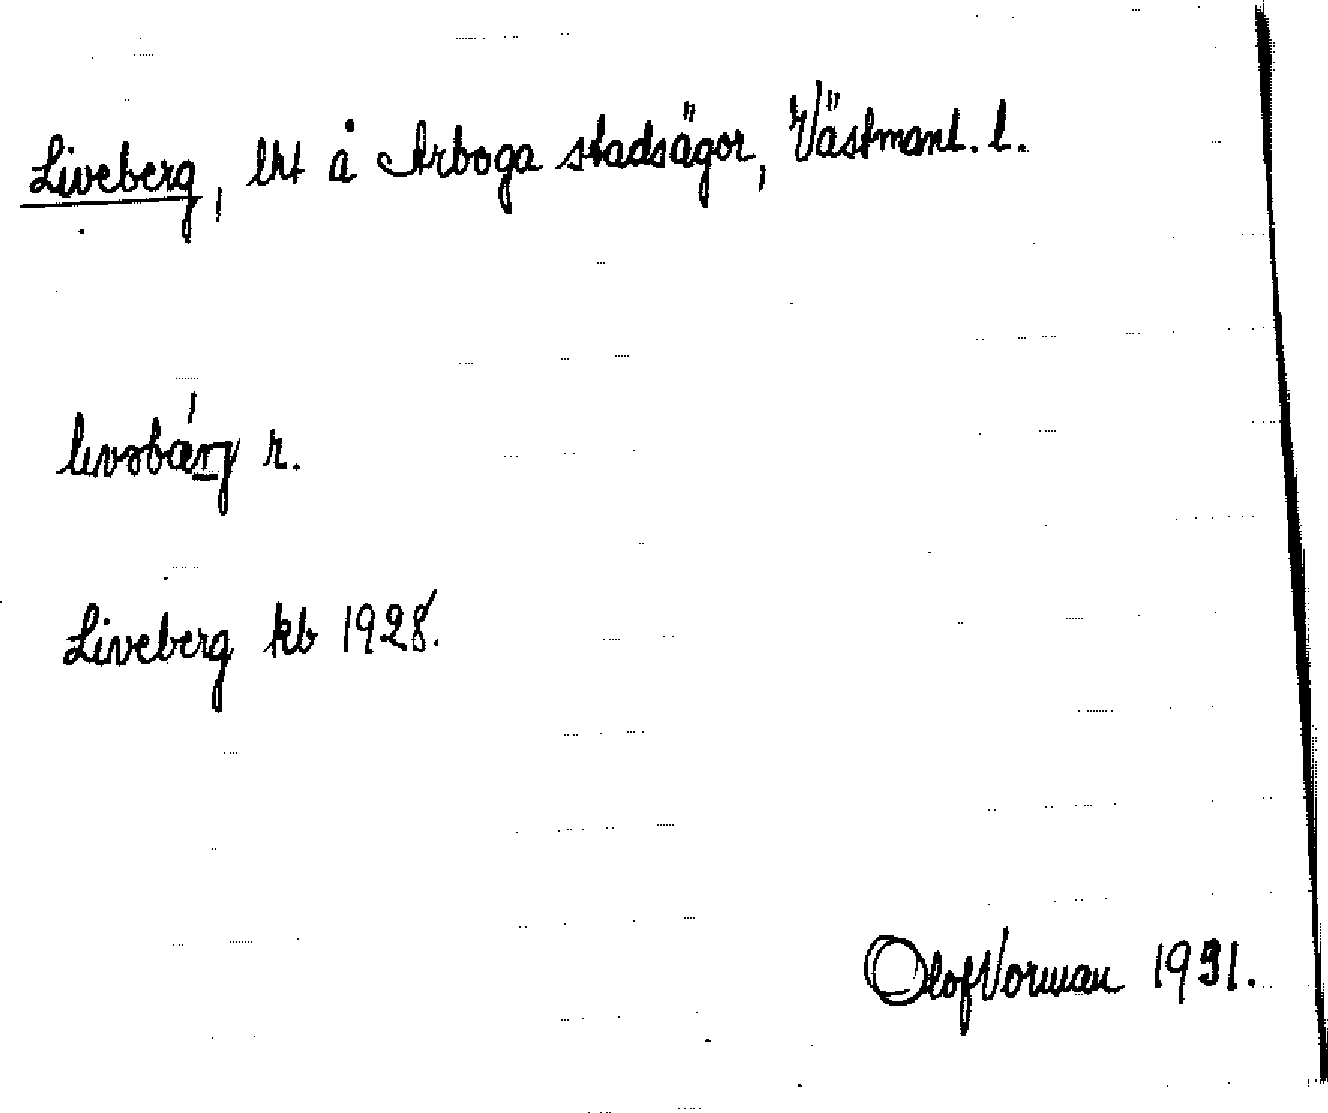 Liveberg, lht å Arboga stadsägor, Västmanl. l.
r.
Liveberg kb 1928.
Olof Vorman 1931.